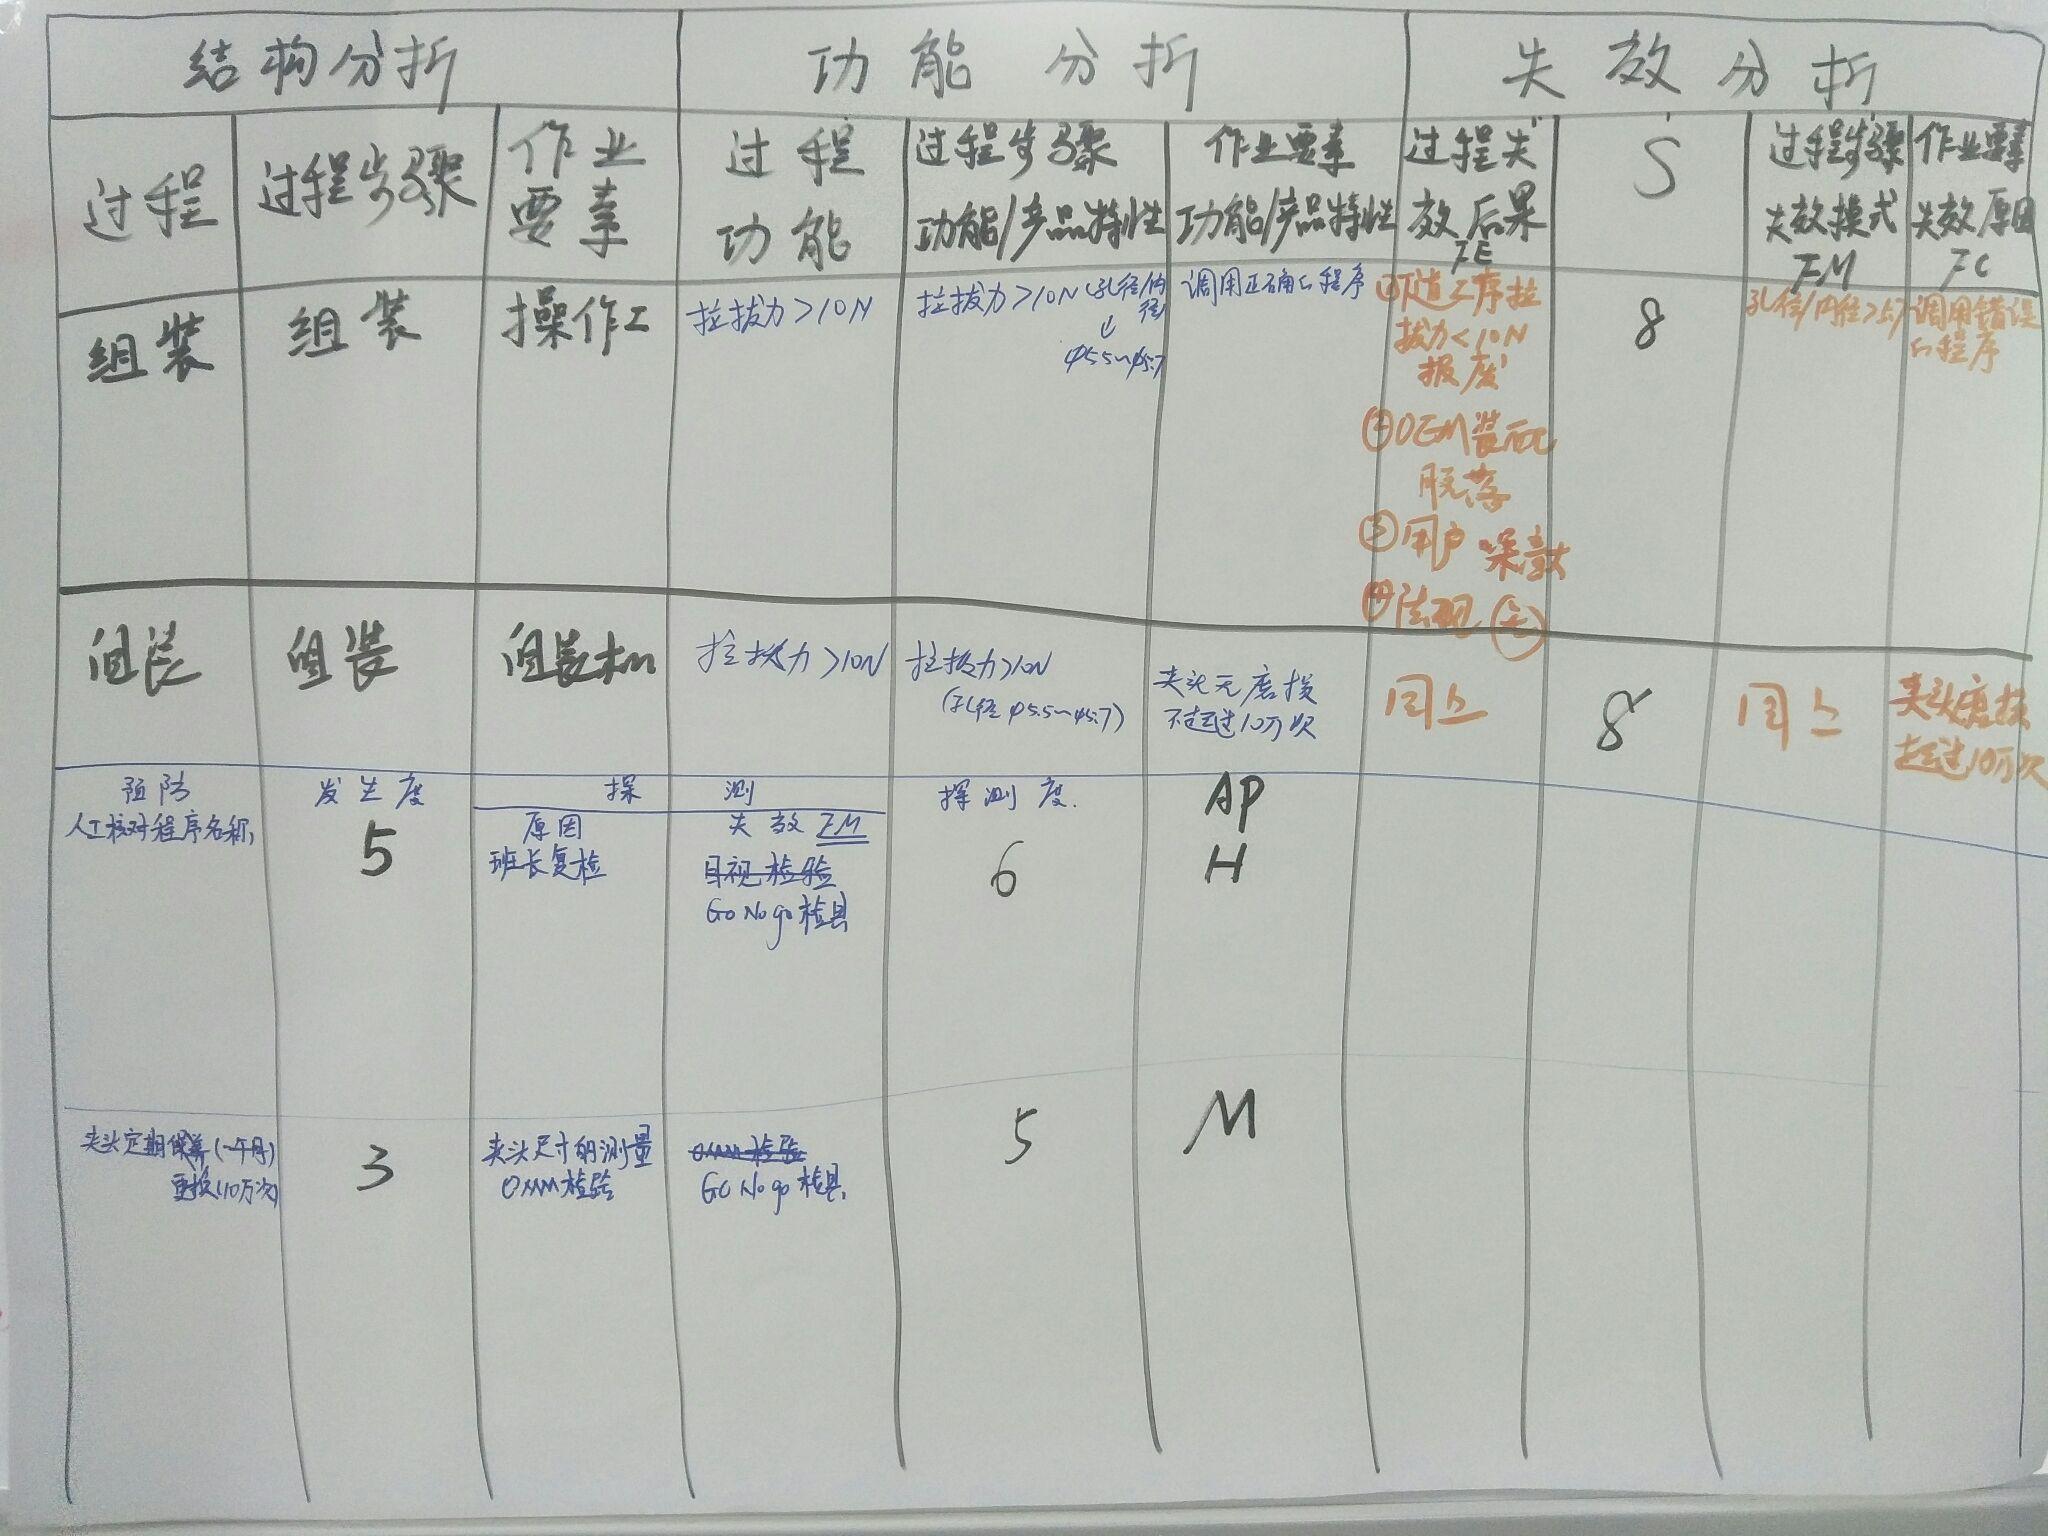 结构分析
功能分析
失效分析
过程
过程步骤
作业
要素
过程
功能
过程步骤
功能/产品特性
作业要素
功能/产品特性
过程失
效后果
FE
S
过程步骤
失效模式
FM
作业要素
失效原因
FC
组装
组装
操作工
拉拔力>10N
拉拔力>10N(孔径/内
径)
↓
φ5.5~φ5.7
调用正确的程序
①下道工序拉
拔力<10N
报废
②OEM装配
脱落
③用户 噪音大
④法规 无
8
孔径/内径>5.7
调用错误
的程序
组装
组装
组装机
拉拔力>10N
拉拔力>10N
(孔径φ5.5~φ5.7)
夹头无磨损
不超过10万次
同上
8
同上
夹头磨损
超过10万次
预防
发生度
探测
探测度.
AP
人工核对程序名称,
5
原因
班长复检
失效FM
目视检验
Go No go 检具
6
H
夹头定期保养(一个月)
更换(10万次)
3
夹头尺寸的测量
OMM检验
OMM检验
GO No go 检具.
5
M